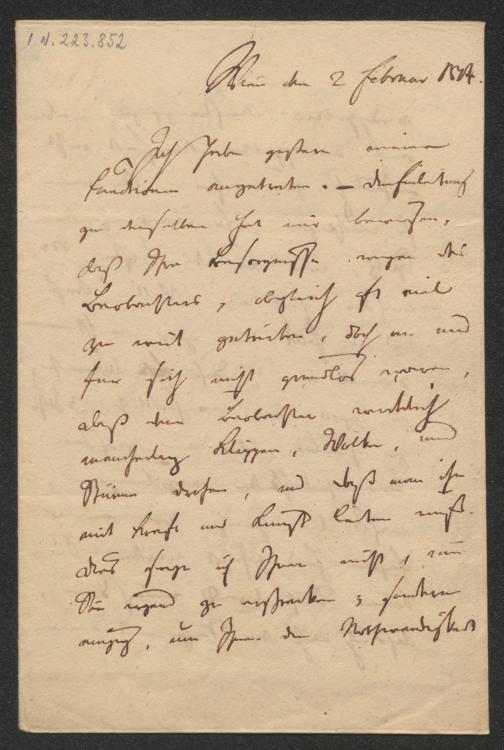 I N. 223.852
Wien den 2 Februar
Ich habe gestern meine
Functionen angetreten. – Die Einleitung
zu denselben hat mir bewiesen,
daß Ihre Besorgnisse wegen des
Beobachters, obgleich oft viel
zu weit getrieben, doch an und
für sich nicht grundlos waren,
daß dem Beobachter wirklich
mancherley Klippen, Wolken, und
Stürme drohen, und daß man ihn
mit Kraft und Kunst leiten muß.
Dies sage ich Ihnen nicht, um
Sie irgend zu erschrecken; sondern
einzig, um Ihnen die Nothwendigkeit